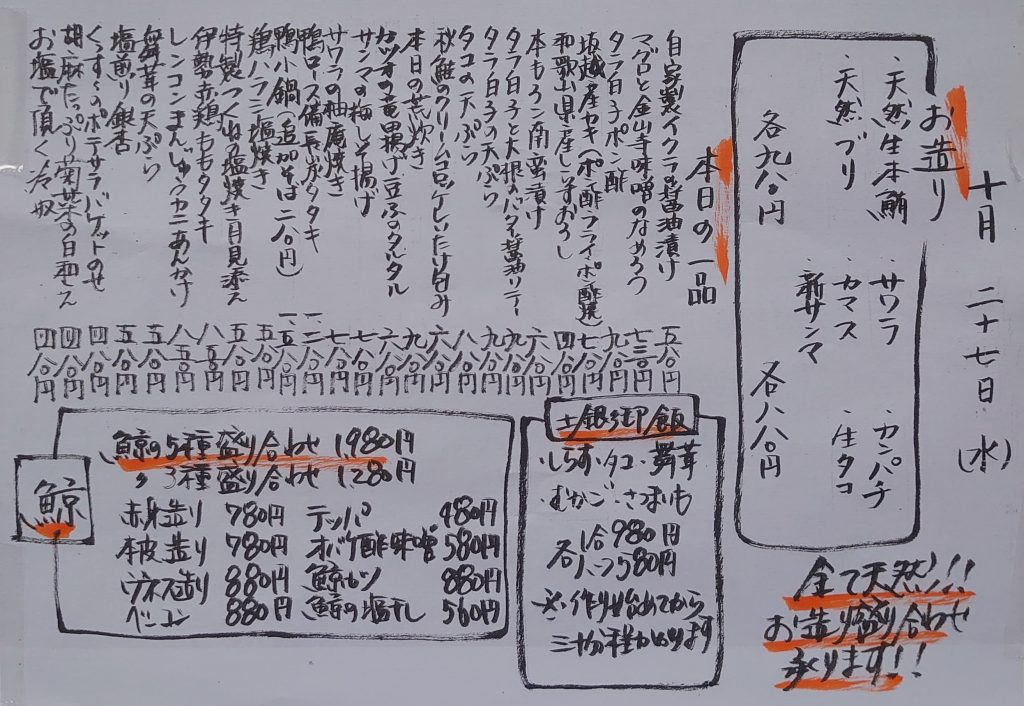 十月二十七日(水)
お造り
・天然生本鮪
・天然ブリ
各九八〇円
・サワラ
・カマス
・新サンマ
・カンパチ
・生タコ
各八八〇円
全て天然!!
お造り盛り合わせ
承ります!!
本日の一品
自家製イクラの醤油漬け 五八〇円
マグロと金山寺味噌のなめろう 七三〇円
タラ白子ポン酢 九八〇円
坂越産カキ(ポン酢フライポン酢焼) 七八〇円
和歌山県産しらすおろし 四八〇円
本もろこ南蛮漬け 六八〇円
タラ白子と大根のバター醤油ソテー 九八〇円
タラ白子の天ぷら 九八〇円
タコの天ぷら 八八〇円
秋鮭のクリームコロッケしいたけ包み 六八〇円
本日の荒炊き 九八〇円
カツオの竜田揚げ豆ふのタルタル 六八〇円
サンマの梅しそ揚げ 八八〇円
サワラの柚庵焼き 七八〇円
鴨ロース備長炭タタキ 一二八〇円
鴨小鍋(追加そば二八〇円) 一五八〇円
鶏ハラミ塩焼き 五八〇円
特製つくねの塩焼き月見添え 五八〇円
伊勢赤鶏ももタタキ 八五〇円
レンコンまんじゅうカニあんかけ 八五〇円
舞茸の天ぷら 五八〇円
塩煎り銀杏 五八〇円
くんすーのポテサラバゲットのせ 四八〇円
胡麻たっぷり菊菜の白和え 四八〇円
お塩で頂く冷奴 四八〇円
土鍋御飯
・しらす・タコ・舞茸
・むかご・さつまいも
各一合980円
ハーフ580円
※・作り始めてから
三十分程かかります
鯨
鯨の5種盛り合わせ 1,980円
〃 3種盛り合わせ 1,280円
赤身造り 780円
本皮造り 780円
ウネス造り 880円
ベーコン 880円
テッパ 480円
オバケ酢味噌 580円
鯨カツ 880円
鯨の塩干し 560円